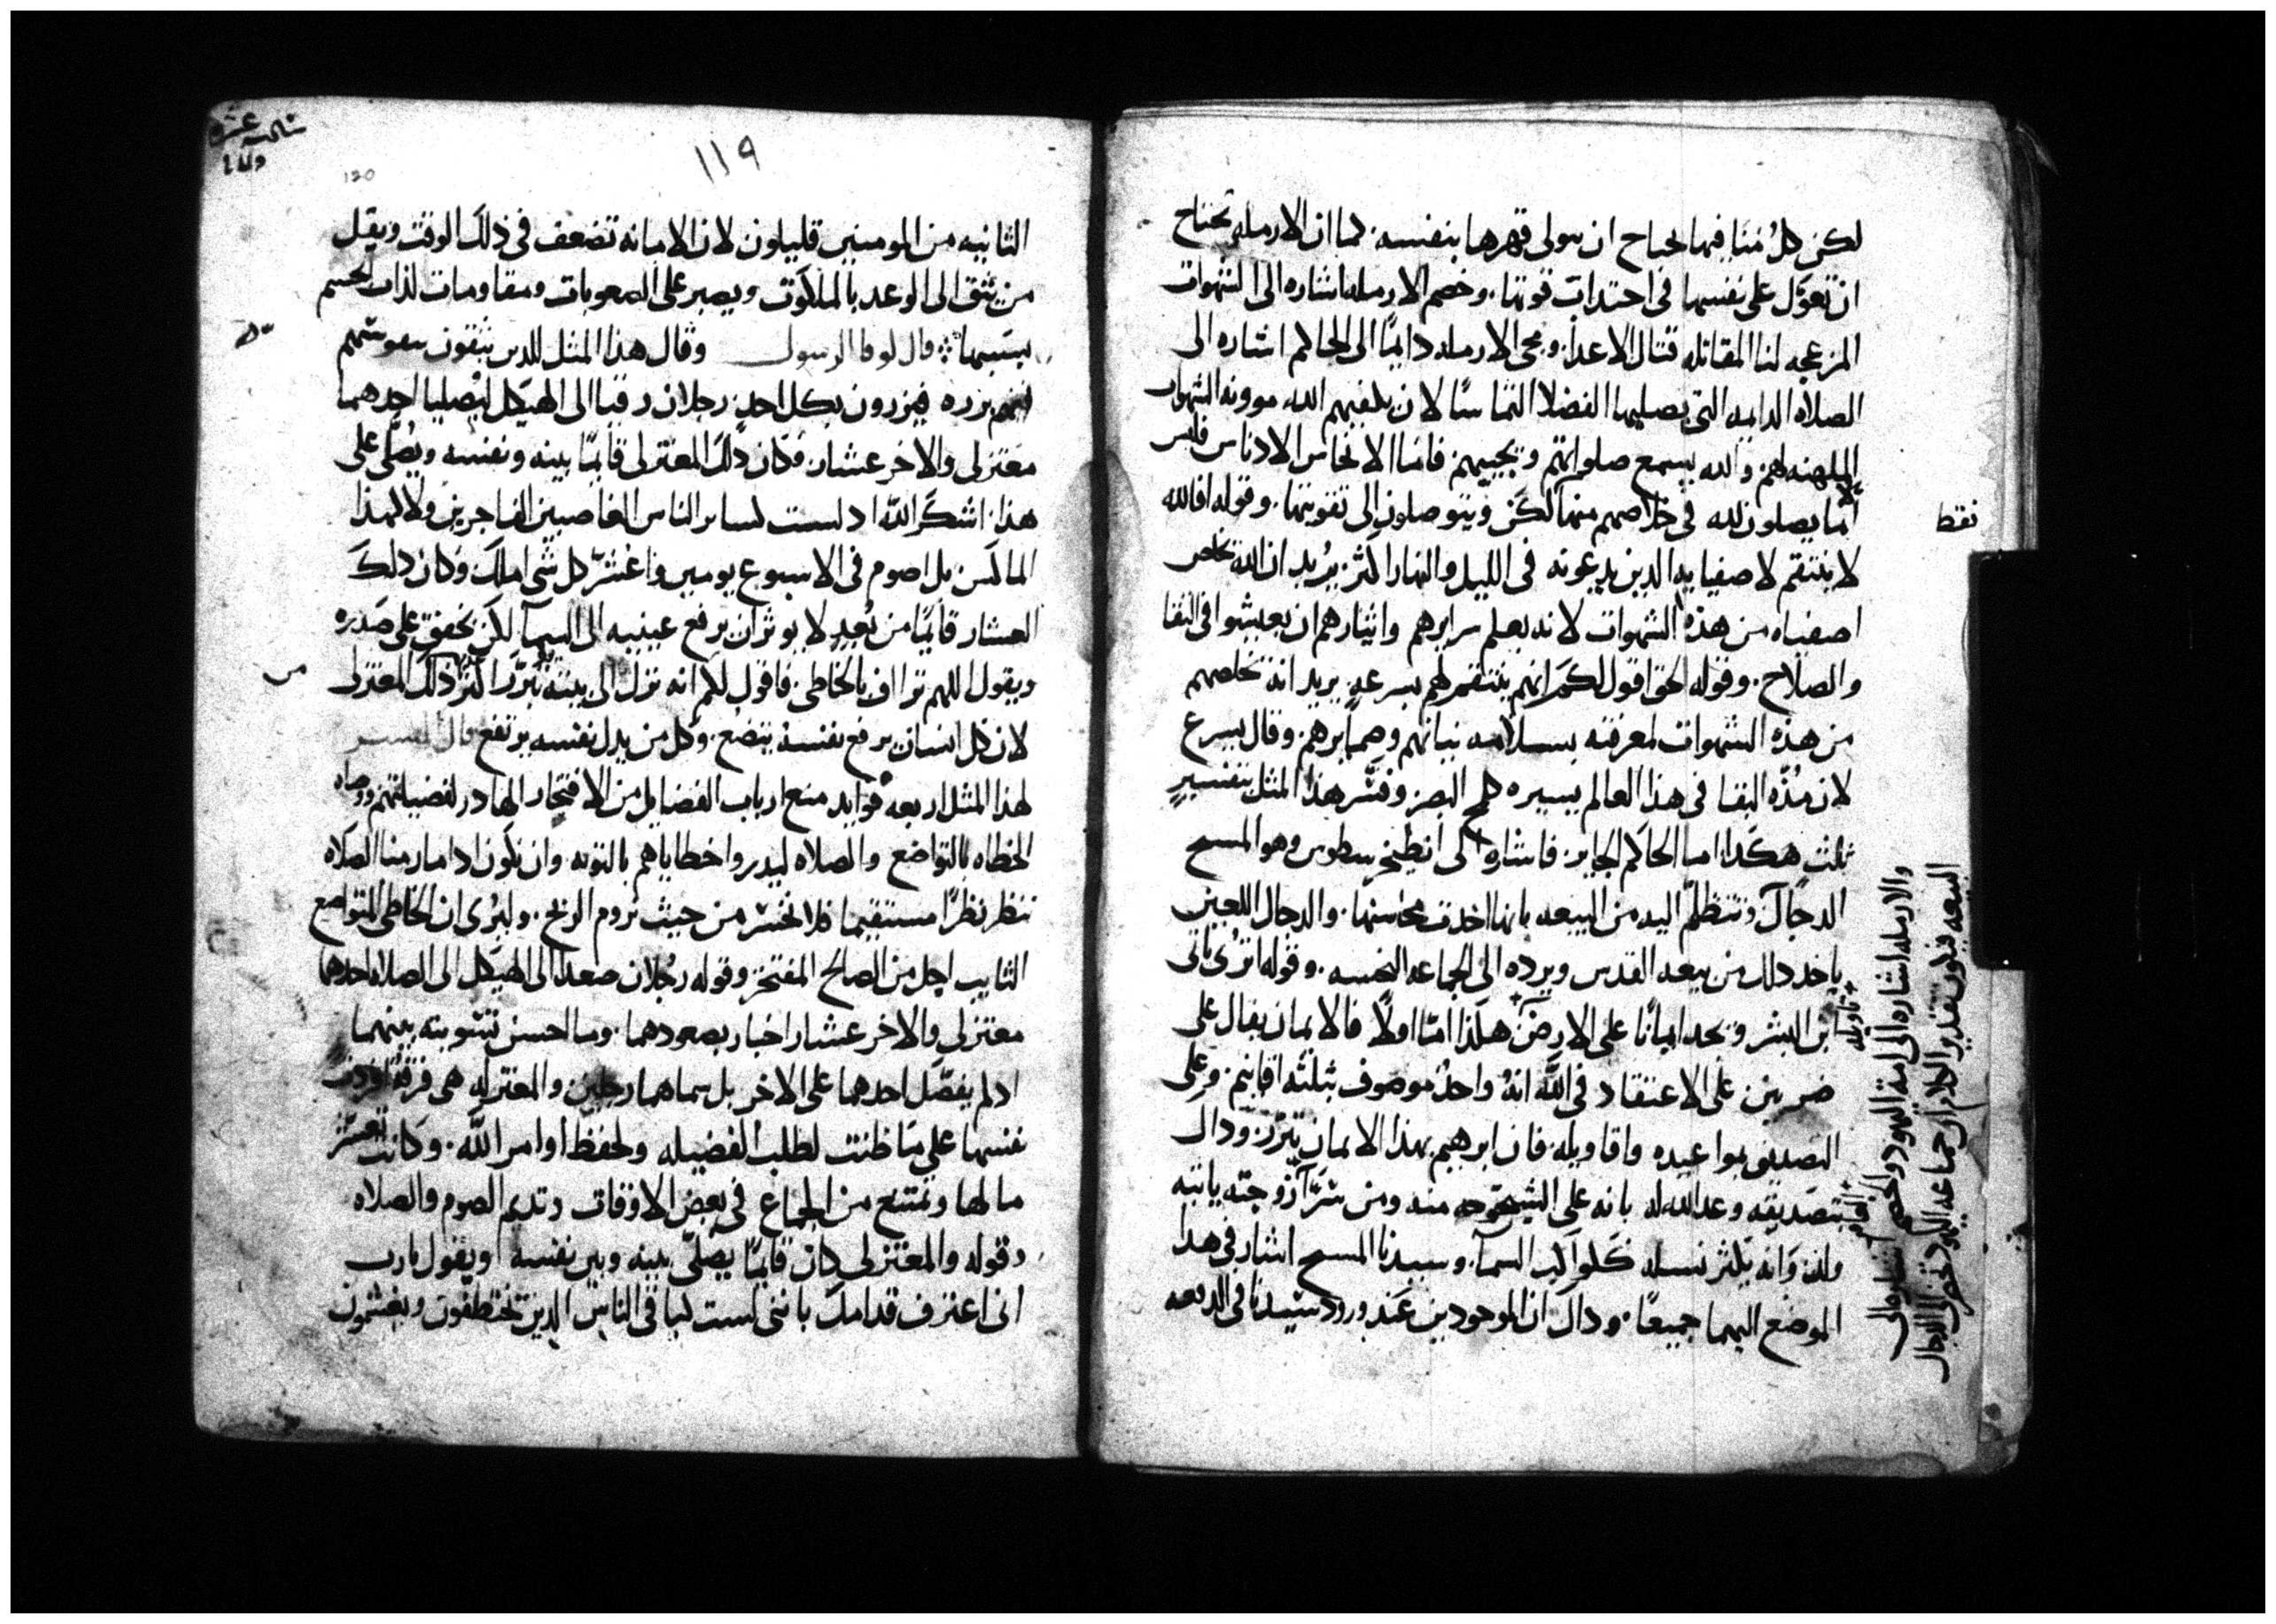 لكن كلُ منَا فيها يحتاج ان يتولى قهرها بنفسه. كما ان الارمله تحتاج
ان تعوَّل على نفسها في اجتداب قوتها. وخصم الارمله اشاره الى الشهوات
المزعجه لنا المقاتله قتال الاعدا. ومجى الارمله دايمًا الى الحاكم اشاره الى
الصلاه الدايمه التي يصليها الفضلا التماسًا لان يكفيهم الله موونه الشهوات
الملهبه لهم. والله يسمع صلواتهم ويجيبهم. فاما الانجاس الادناس فليس
انما يصلون لله في خلاصهم منها لكن ويتوصلون الى تقويتها. وقوله افالله
لا ينتقم لاصفيايه الدين يدعونه في الليل والنهار اكثر. يُريد ان الله يخلص
اصفياه من هذه الشهوات لانه يعلم سرايرهم وايثارهم ان يعيشوا في النقا
والصلاح. وقوله الحق اقول لكم انهم ينتقم لهم بسرعهٍ. يريد انه يخلصهم
من هذه الشهوات لمعرفته بسلامه نياتهم وضمايرهم. وقال يسرع
لان مُدّه البقا في هذا العالم يسيره كلمح البصر. وفسَّر هذا المثل بتفسيرٍ
ثلث هكدا اما الحاكم الجاير فاشاره الى انطيخريسطوس وهو المسيح
الدجّال. وتتظلّم اليه من البيعه بانها اخدت محاسنها. والدجال اللعين
ياخد دلك من بيعه القدس ويرده الى الجماعه النجسه. وقوله اترى ياتي
ابن البشر ويجد ايمانًا على الارض. هكذا امّا اولًا فالايمان يقال على
ضربين. على الاعتقاد في الله انهُ واحدٌ موصوف بثلثه اقانيم. وعلى
التصديق بمواعيده واقاويله. فان ابرهيم بهذا الايمان تبرّر. وداك
بتصديقه وعد الله له بانه على الشيخوخه منه ومن سَرَّا زوجته ياتيه
ولد وَانه يكثر نسله ككواكب السما. وسيدنا المسيح اشار في هدا
الموضع اليهما جميعًا. وداك ان الموجودين عند ورود سيدنا في الدفعه
نقط
تاويله
والارمله اشاره الى امه اليهود والخصم اشاره الى
البيعه فيكون تقدير الكلام ان جماعه اليهود تحضر الى الدجال
ثالثه عشره
119
120
الثانيه من المومنين قليلون لان الامانه تضعف في ذلك الوقت ويقل
من يثق الى الوعد بالملكوت ويصبر على الصعوبات ومقاومات لذات الجسم
بسببها قال لوقا الرسول وقال هذا المثل للدين يثقون بنفوسهم
انهم برره فيزرون بكل احدٍ. رجلان رقيا الى الهيكل ليصليا احدهما
معتزلى والاخر عشار. فكان ذلك المعتزلى قايمًا بينه ونفسه ويُصلى على
هذا. اشكر الله اد لست كساير الناس الغاصبين الفاجرين ولا كهذا
الماكس بل اصوم في الاسبوع يومين واعَشِّر كل شى املك وكان دلك
العشار قايمًا من بُعدٍ لا يوثر ان يرفع عينيه الى السما لكن يخفق على صَدره
ويقول اللهم تراأف بالخاطى. فاقول لكم انه نزل الى بيته مُبَرَّرًا اكثر ذلك المعتزلى
لان كل انسان يرفع نفسه يتضع. وكل من يدل نفسه يرتفع قال المفسر
لهذا المثل اربعه فوايد منع ارباب الفضايل من الافتخار الهادر لفضيلتهم ووصاه
الخطاه بالتواضع والصلاه ليدبروا خطاياهم بالتوبه وان نكون ادا مارسنا الصلاه
ننظر نظرًا مستقيمًا فلا نخسر من حيث نروم الربح. وليُرى ان الخاطى المتواضع
التايب اجل من الصالح المفتخر. وقوله رجُلان صعدا الى الهيكل الى الصلاه احدهما
معتزلى والاخر عشار اخبار بصعودهما. وما احسن تسويته بينهما
ادلم يفضّل احدهما على الاخر بل سماهما رجلين. والمعتزله هى فرقة افردت
نفسها على مَا ظنت لطلب الفضيله ولحفظ اوامر الله. وكانت تعشّر
مالها وتمتنع من الجماع في بعض الاوقات وتديم الصوم والصلاه
وقوله والمعتزلى كان قايمًا يُصلّى بينه وبين نفسه ويقول يارب
انى اعترف قدامك باننى لست كباقى الناس الدين يختطفون ويغشمون